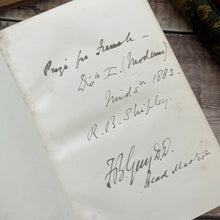 Prize for French –
Div^n I. (Modern)
Mids^r 1883.
R. B. Shipley
F B Guy D.D.
Head Master